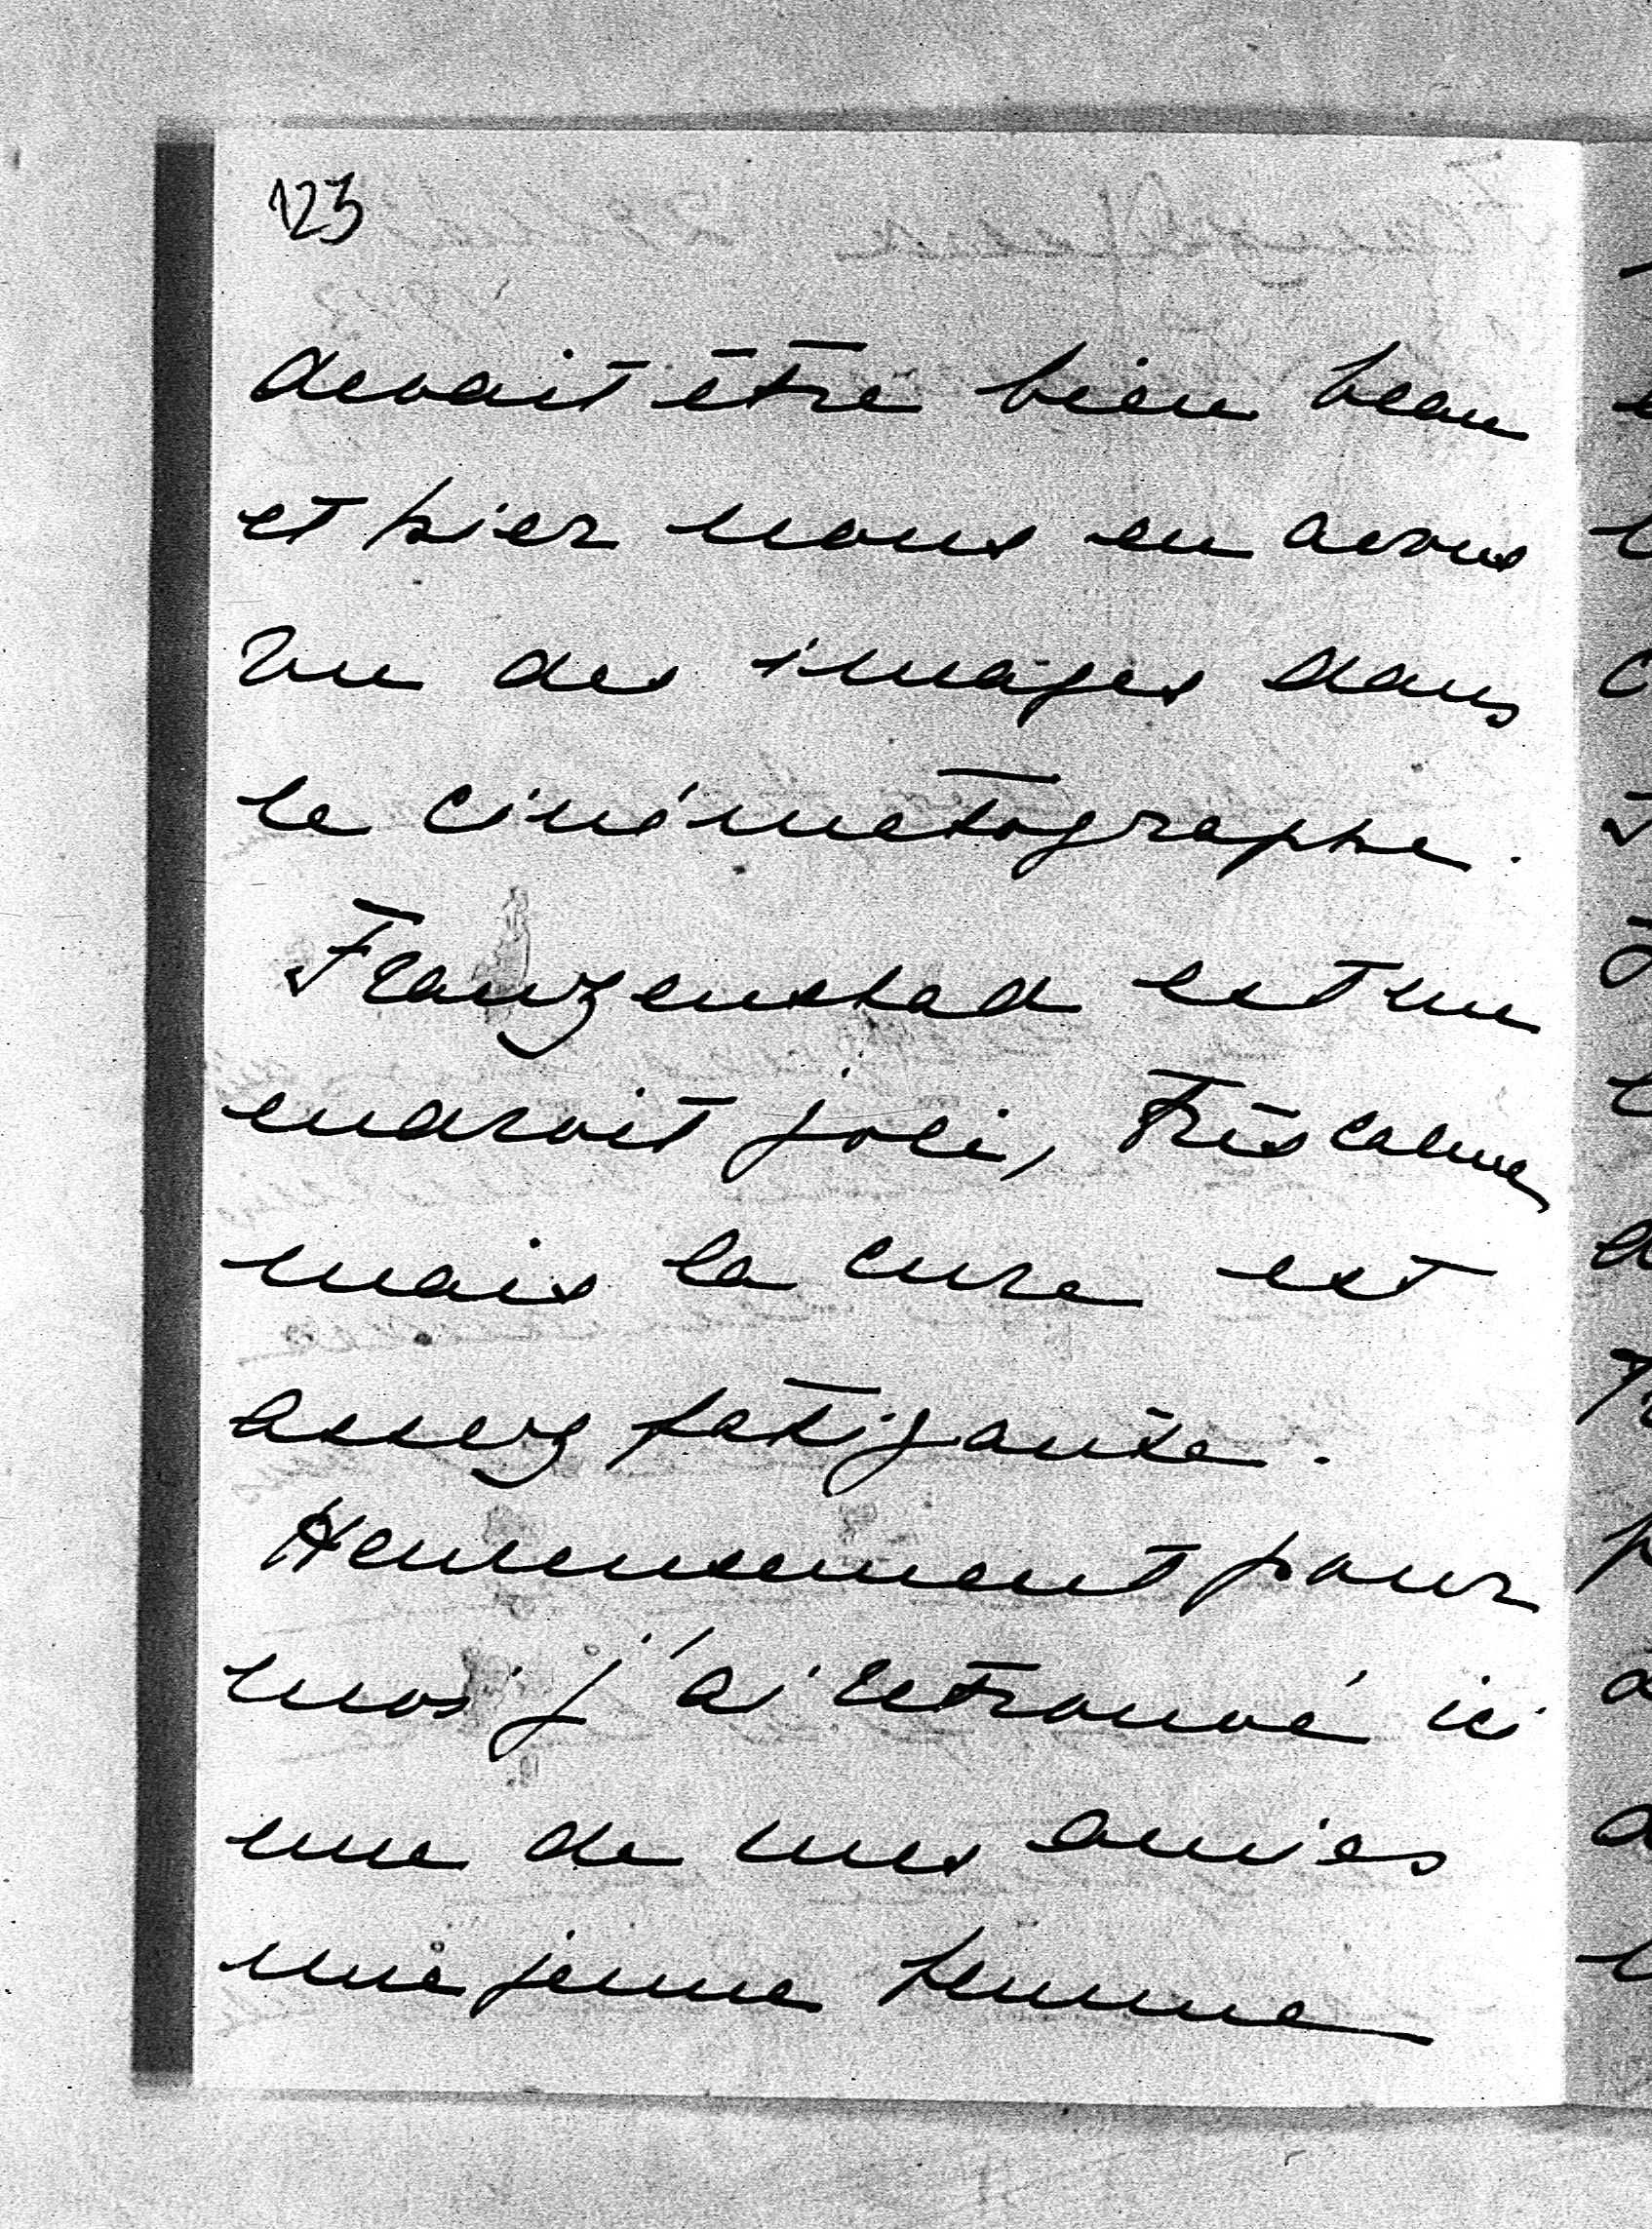 123
devait être bien beau
et hier nous en avons
vu des images dans
le cinématographe.
Franzensbad est un
endroit joli, très calme
mais la cure est
assez fatigante.
Heureusement pour
moi j'ai retrouvé ici
une de mes amies
une jeune femme